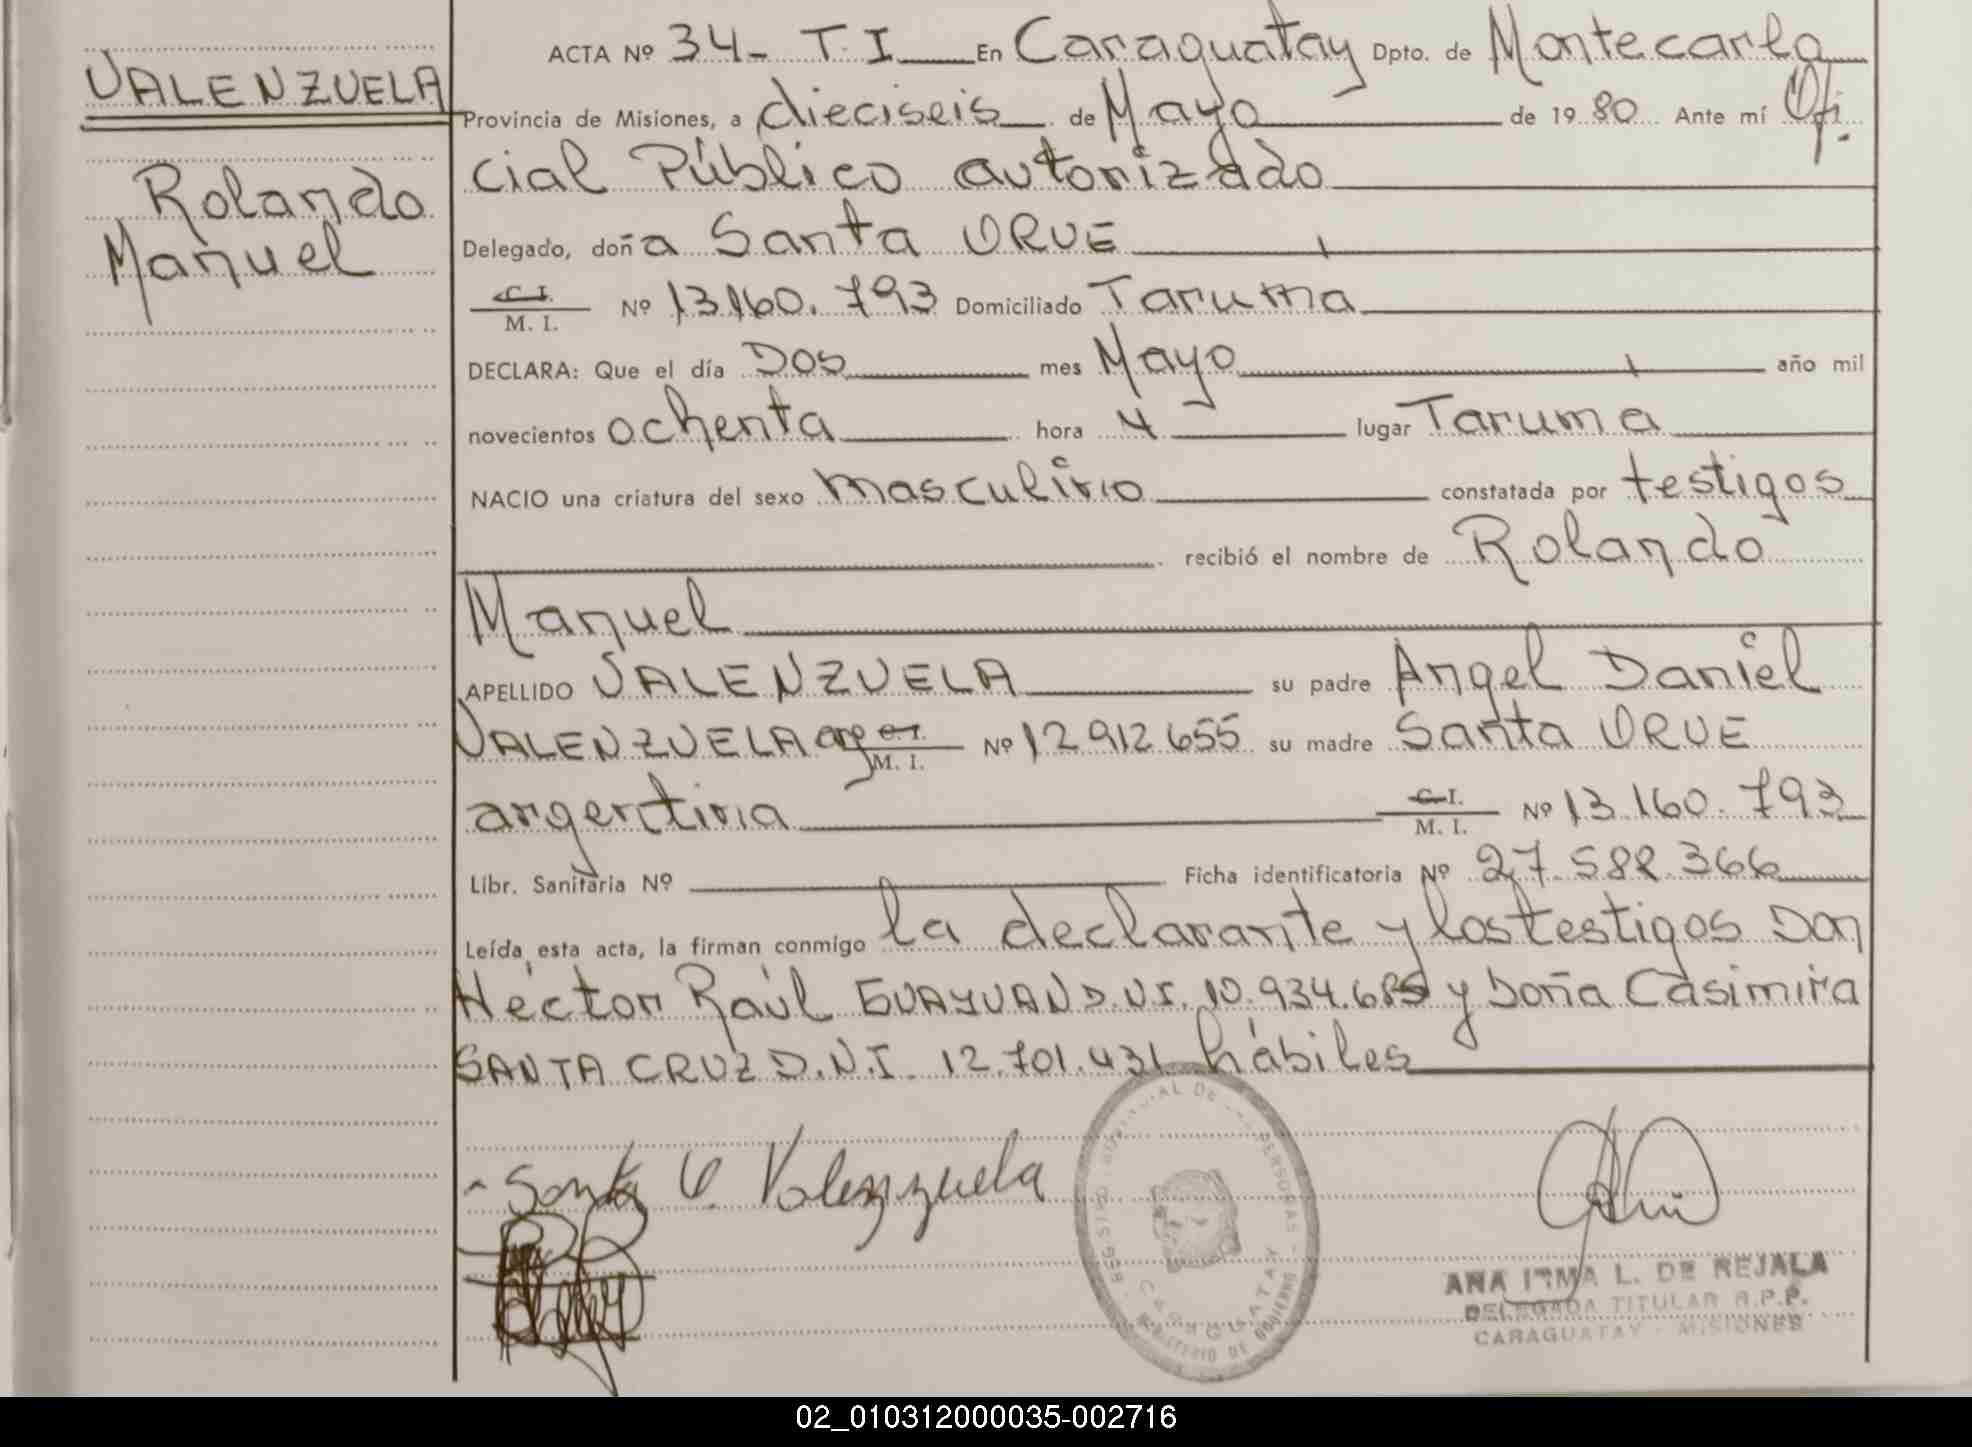 VALENZUELA
Rolando
Manuel
ACTA Nº 34- T. I. En Caraguatay Dpto. de Montecarlo
Provincia de Misiones, a dieciseis de Mayo de 1980. Ante mí Ofi-
cial Público autorizado
Delegado, doña Santa ORUE
C. I.
M. I. Nº 13.160.793 Domiciliado Taruma
DECLARA: Que el día Dos mes Mayo año mil
novecientos ochenta hora 4 lugar Taruma
NACIO una criatura del sexo masculino constatada por testigos
recibió el nombre de Rolando
Manuel
APELLIDO VALENZUELA su padre Angel Daniel
VALENZUELA arg C. I.
M. I. Nº 12 912 655 su madre Santa ORUE
argentina C. I.
M. I. Nº 13.160.793
Libr. Sanitaria Nº Ficha identificatoria Nº 27.582.366
Leída esta acta, la firman conmigo la declarante y los testigos Don
Héctor Raúl GUAYUAN D.N.I. 10.934.685 y Doña Casimira
SANTA CRUZ D.N.I. 12.701.431 hábiles
Santa O. Valenzuela
CARAGUATAY
MINISTERIO DE GOBIERNO
ANA IRMA L. DE REJALA
DELEGADA TITULAR R.P.P.
CARAGUATAY - MISIONES
02_010312000035-002716